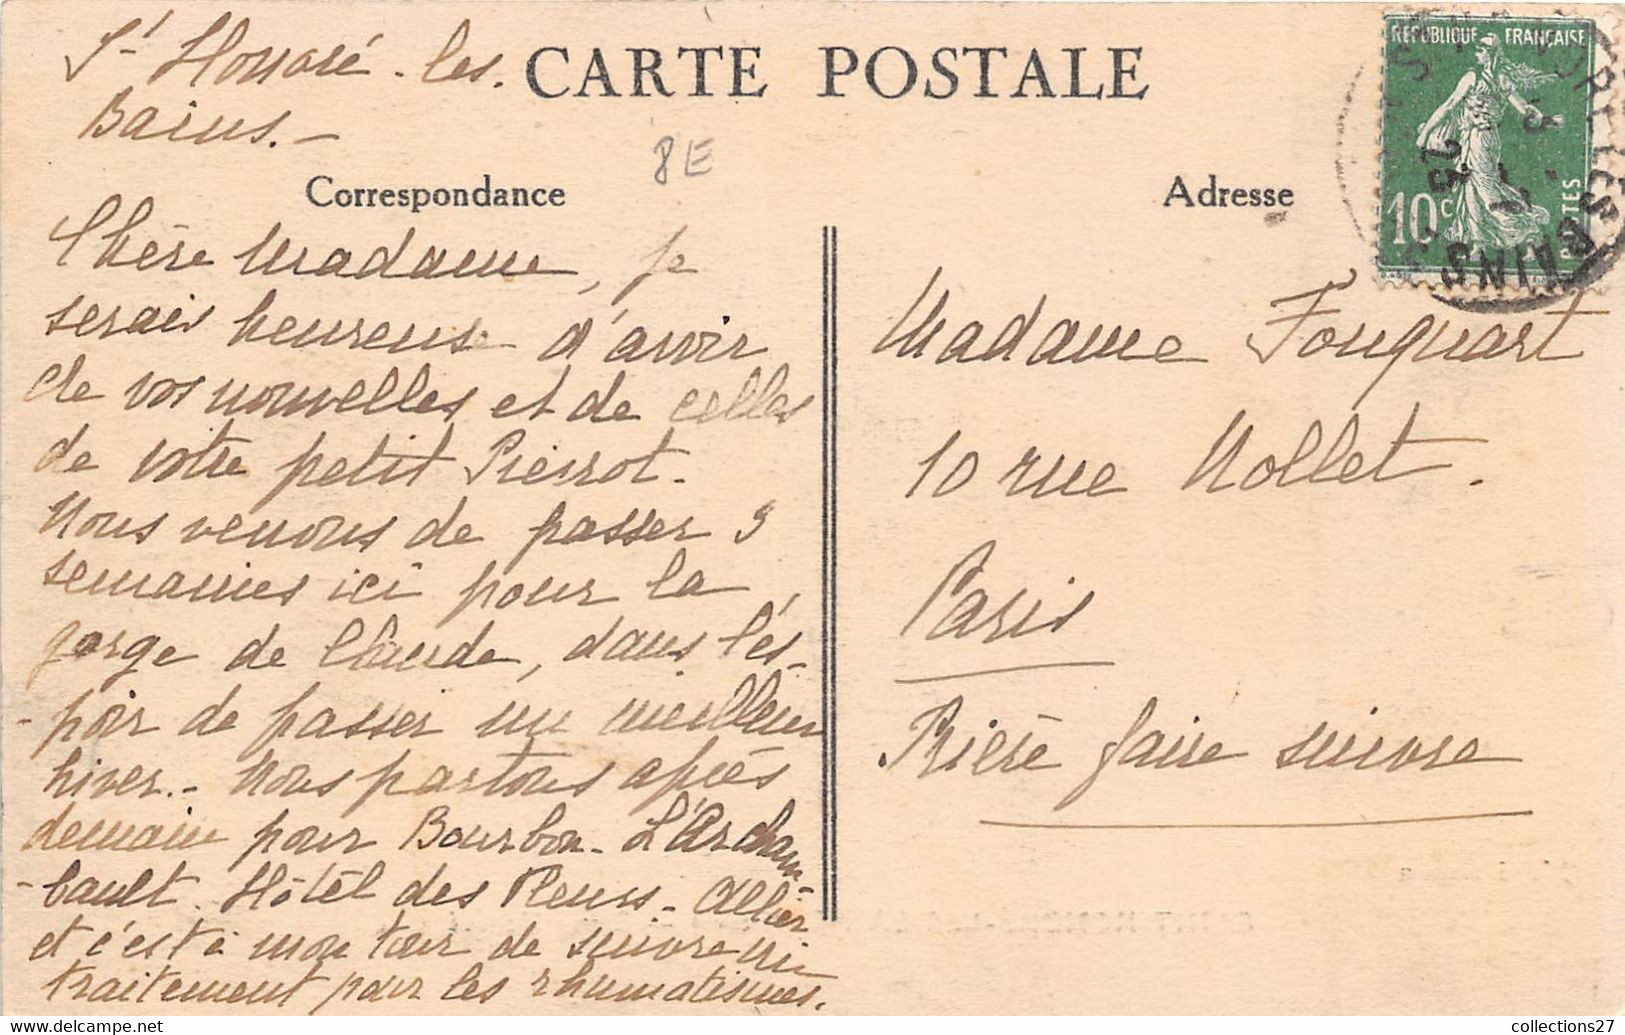 St Honoré-les.
Bains.-
CARTE POSTALE
8E
Correspondance
Adresse
RÉPUBLIQUE FRANÇAISE
10c
POSTES
BAINS
Chère Madame, je
serais heureuse d'avoir
de vos nouvelles et de celles
de votre petit Pierrot.
Nous venons de passer 3
semaines ici pour la
gorge de Claude, dans l'es-
-poir de passer un meilleur
hiver.- Nous partons après
demain pour Bourbon-L'Archam-
-bault. Hôtel des Fleurs-Allier
et c'est à mon tour de suivre un
traitement pour les rhumatismes.
Madame Fouquart
10 rue Nollet.
Paris
Prière faire suivre
collections27